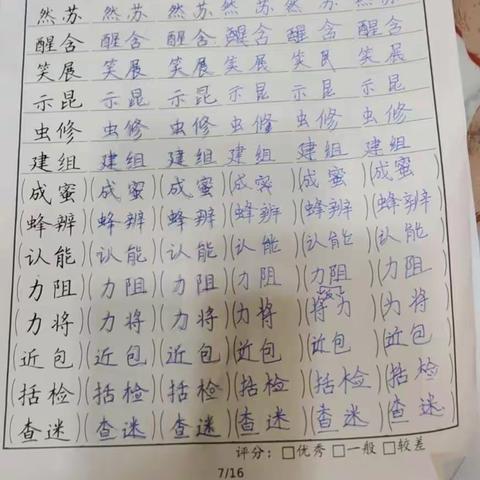 然苏 然苏 然苏 然苏 然苏 然苏
醒含 醒含 醒含 醒含 醒含 醒含
笑展 笑展 笑展 笑展 笑民 笑展
示昆 示昆 示昆 示昆 示昆 示昆
虫修 虫修 虫修 虫修 虫修 虫修
建组 建组 建组 建组 建组 建组
(成蜜)(成蜜)(成蜜)(成蜜)(成蜜)(成蜜)
(蜂辨)(蜂辨)(蜂辨)(蜂辨)(蜂辨)(蜂辨)
(认能)(认能)(认能)(认能)(认能)(认能)
(力阻)(力阻)(力阻)(力阻)(力阻)(力阻)
(力将)(力将)(力将)(力将)(将力)(为将)
(近包)(近包)(近包)(近包)(近包)(近包)
(括检)(括检)(括检)(括检)(括检)(括检)
(查迷)(查迷)(查迷)(查迷)(查迷)(查迷)
评分：□优秀 □一般 □较差
7/16